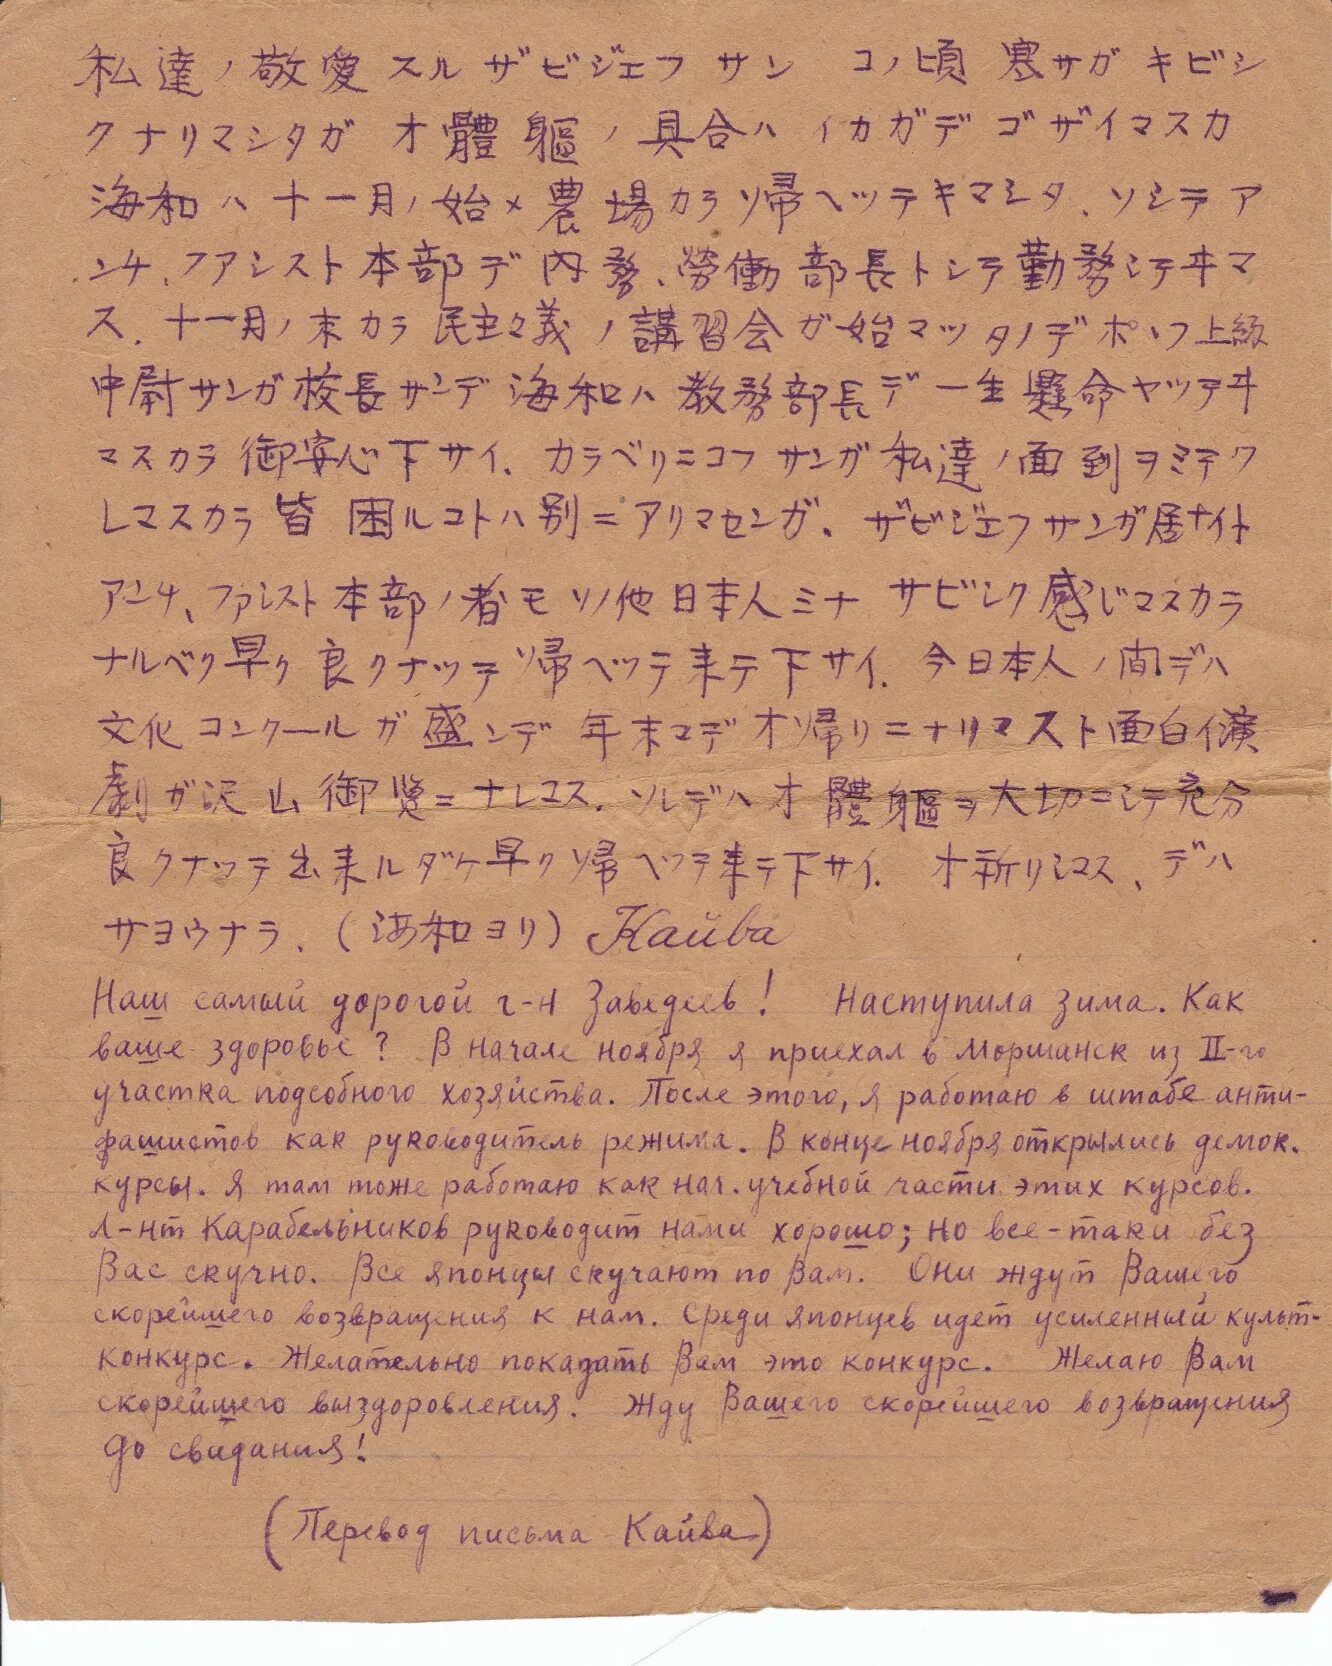 私達ノ敬愛スルザビジェフサン コノ頃寒サガキビシ
クナリマシタガオ體軀ノ具合ハイカガデゴザイマスカ
海和ハ十一月ノ始メ農場カラ帰ヘッテキマシタ、ソシテア
ンチ、ファシスト本部デ内務、勞働部長トシテ勤務シテヰマ
ス、十一月ノ末カラ民主々義ノ講習会ガ始マッタノデポポフ上級
中尉サンガ校長サンデ海和ハ教務部長デ一生懸命ヤッテヰ
マスカラ御安心下サイ、カラベリニコフサンガ私達ノ面到ヲミテク
レマスカラ皆困ルコトハ別ニアリマセンガ、ザビジェフサンガ居ナイト
アンチ、ファシスト本部ノ者モソノ他日本人ミナサビシク感じマスカラ
ナルベク早ク良クナッテ帰ヘッテ来テ下サイ、今日本人ノ間デハ
文化コンクールガ盛ンデ年末マデオ帰リニナリマスト面白イ演
劇ガ沢山御覧ニナレマス、ソレデハオ體軀ヲ大切ニシテ充分
良クナッテ出来ルダケ早ク帰ヘッテ来テ下サイ、オ祈リシマス、デハ
サヨウナラ、(海和ヨリ) Кайва
Наш самый дорогой г-н Заведеев! Наступила зима. Как
ваше здоровье? В начале ноября я приехал в Моршанск из II-го
участка подсобного хозяйства. После этого, я работаю в штабе анти-
фашистов как руководитель режима. В конце ноября открылись демок.
курсы. Я там тоже работаю как нач. учебной части этих курсов.
Л-нт Карабельников руководит нами хорошо; но все-таки без
Вас скучно. Все японцы скучают по Вам. Они ждут Вашего
скорейшего возвращения к нам. Среди японцев идет усиленный культ-
конкурс. Желательно показать Вам это конкурс. Желаю Вам
скорейшего выздоровления. Жду Вашего скорейшего возвращения
До свидания!
(Перевод письма Кайва)